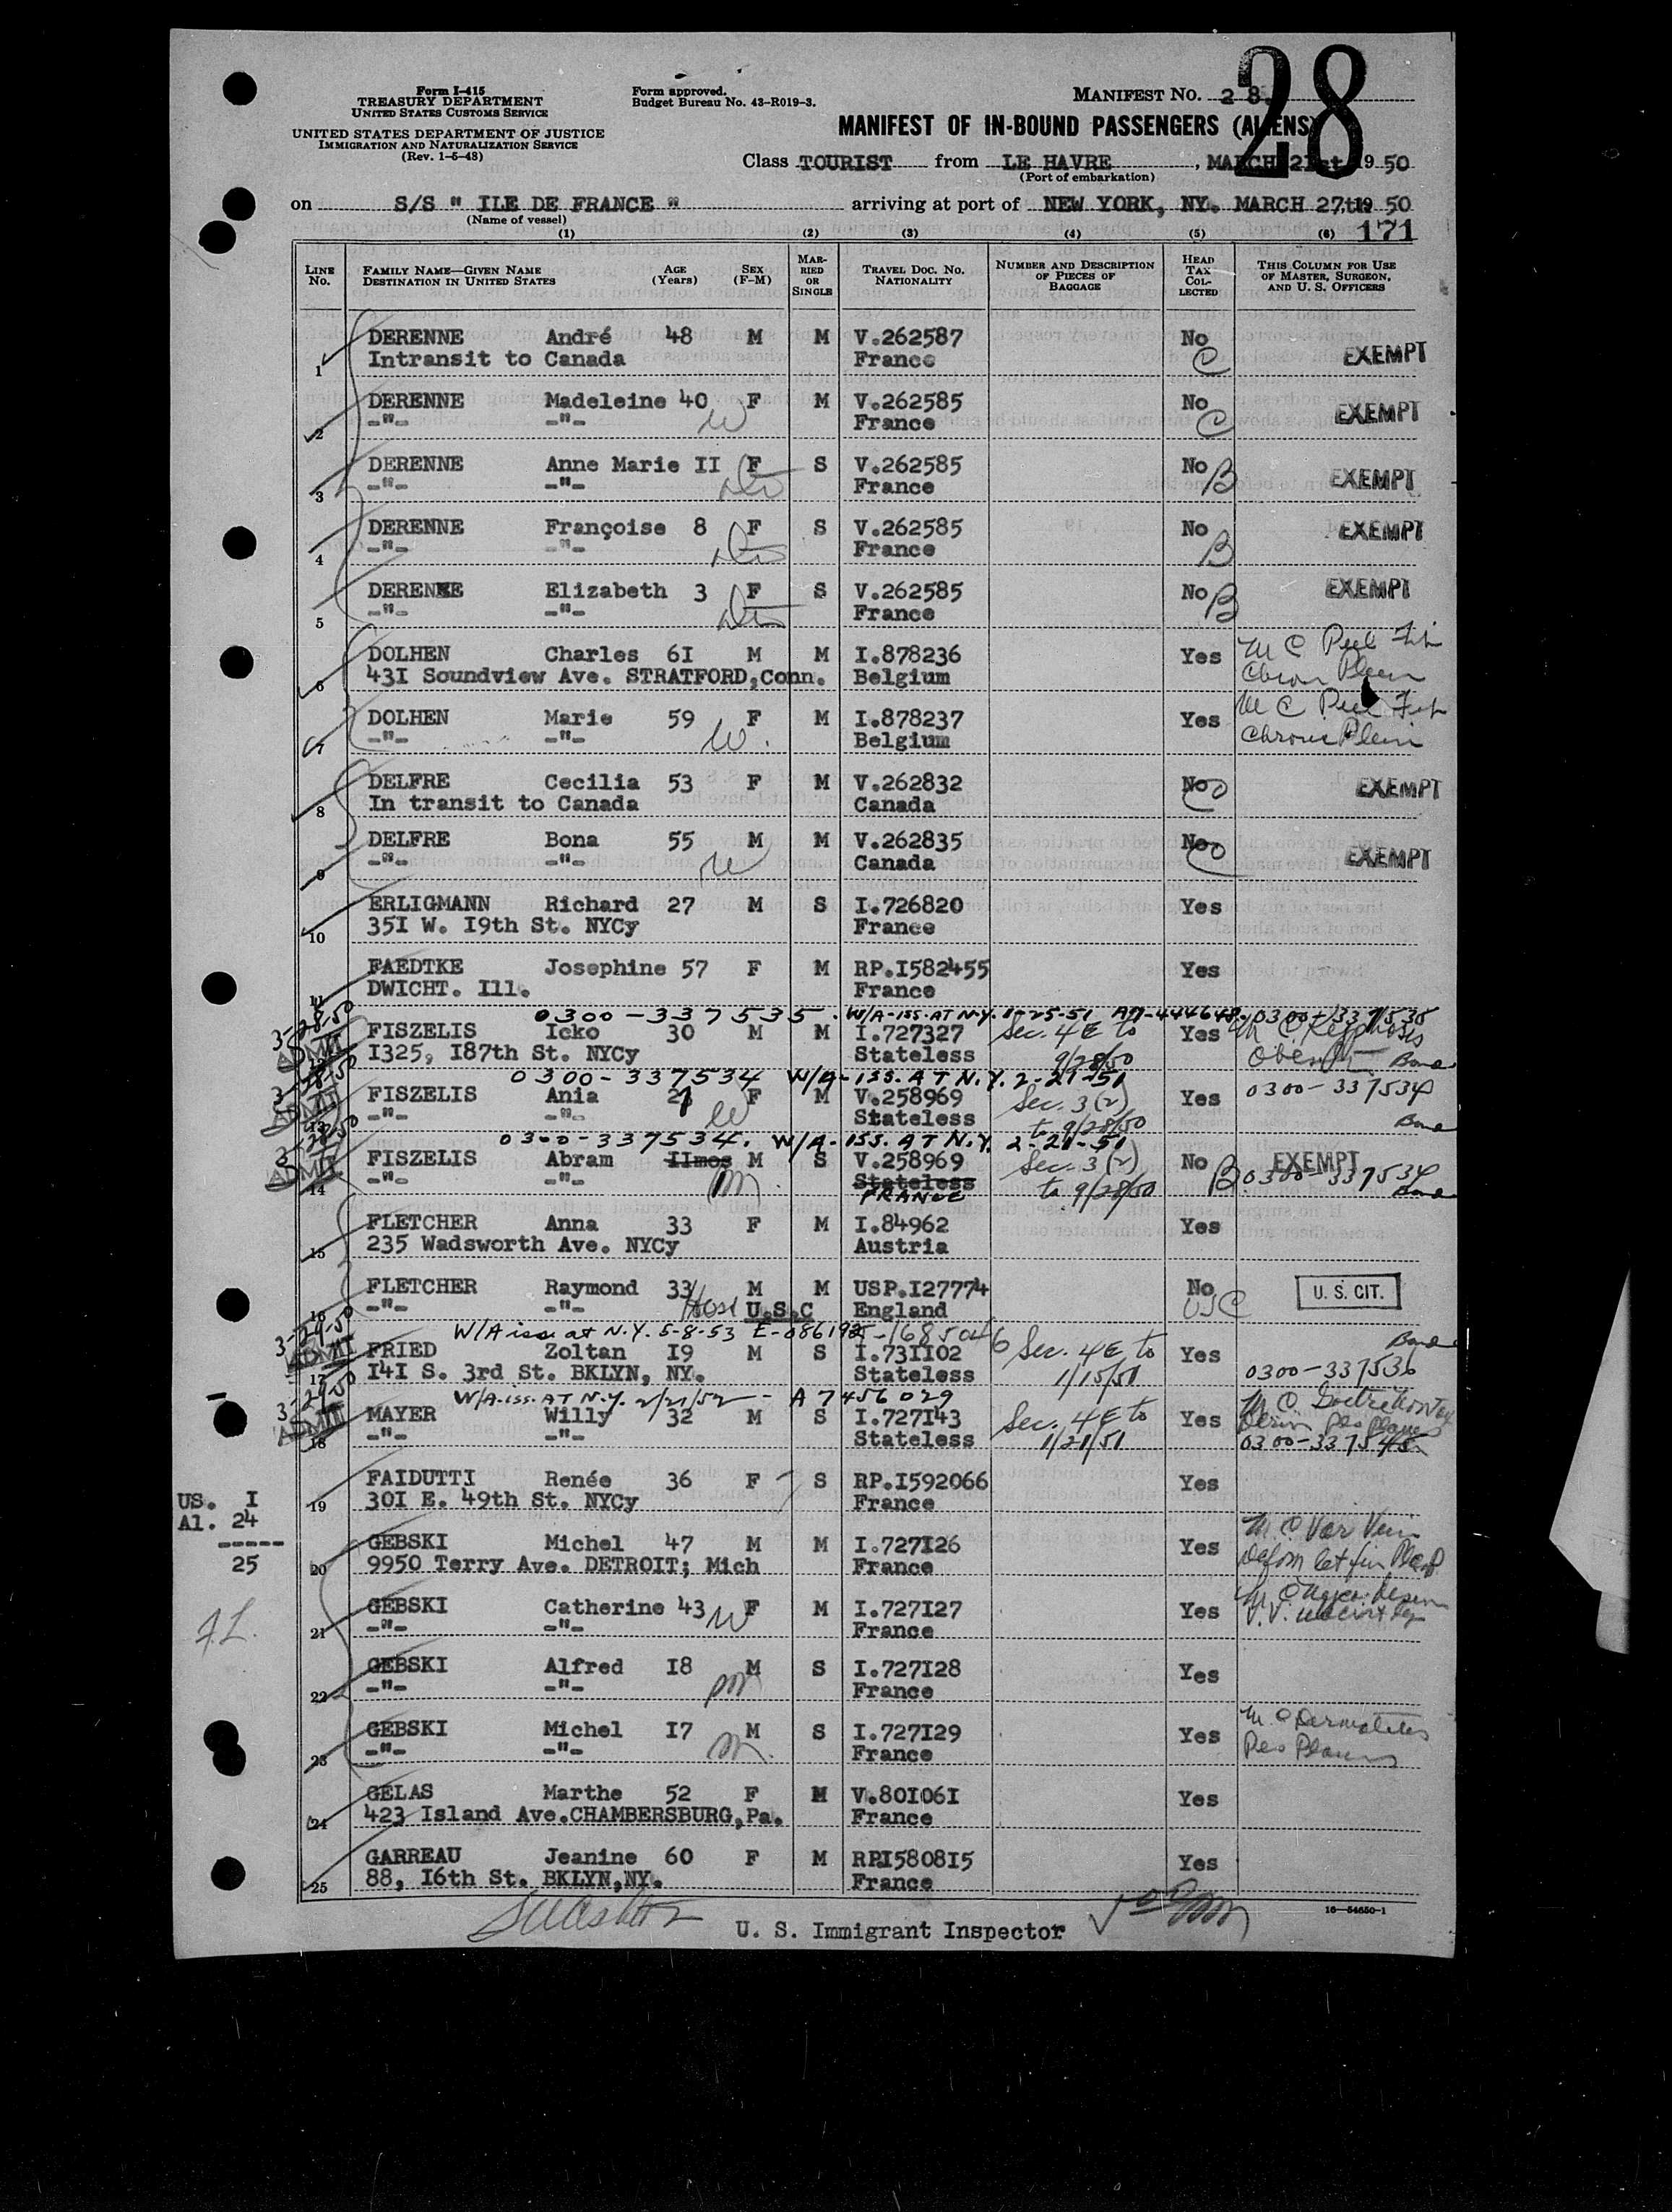 Form I-415
TREASURY DEPARTMENT
UNITED STATES CUSTOMS SERVICE
UNITED STATES DEPARTMENT OF JUSTICE
IMMIGRATION AND NATURALIZATION SERVICE
(Rev. 1-5-48)
Form approved.
Budget Bureau No. 43-R019-3.
MANIFEST NO. 28.
28
MANIFEST OF IN-BOUND PASSENGERS (ALIENS)
Class TOURIST from LE HAVRE, MARCH 21st 1950
(Port of embarkation)
on S/S " ILE DE FRANCE " arriving at port of NEW YORK, NY. MARCH 27,th 1950
(Name of vessel)
(1) (2) (3) (4) (5) (6) 171
LINE NO. FAMILY NAME—GIVEN NAME DESTINATION IN UNITED STATES AGE (Years) SEX (F-M) MARRIED OR SINGLE TRAVEL DOC. NO. NATIONALITY NUMBER AND DESCRIPTION OF PIECES OF BAGGAGE HEAD TAX COLLECTED THIS COLUMN FOR USE OF MASTER, SURGEON, AND U. S. OFFICERS
DERENNE André 48 M M V.262587 No EXEMPT
1 Intransit to Canada France C
DERENNE Madeleine 40 F M V.262585 No EXEMPT
2 -"- -"- W France C
DERENNE Anne Marie II F S V.262585 No B EXEMPT
3 -"- -"- France
DERENNE Françoise 8 F S V.262585 No EXEMPT
4 -"- -"- France B
DERENNE Elizabeth 3 F S V.262585 No B EXEMPT
5 -"- -"- France
DOLHEN Charles 6I M M I.878236 Yes M C
6 43I Soundview Ave. STRATFORD,Conn. Belgium
DOLHEN Marie 59 F M I.878237 Yes M C
7 -"- -"- W. Belgium
DELFRE Cecilia 53 F M V.262832 No EXEMPT
8 In transit to Canada Canada C
DELFRE Bona 55 M M V.262835 No EXEMPT
9 -"- -"- Canada C
ERLIGMANN Richard 27 M S I.726820 Yes
10 35I W. I9th St. NYCy France
FAEDTKE Josephine 57 F M RP.I582455 Yes
11 DWICHT. Ill. France
0300-337535. W/A-ISS.AT N.Y. 0300-337535
3-28-50 FISZELIS Icko 30 M M I.727327 Sec. 4E to Yes
ADMIT 12 I325, I87th St. NYCy Stateless 9/28/50 Bond
0300-337534 W/A-ISS. AT N.Y. 2-21-51
3-28-50 FISZELIS Ania 21 F M V.258969 Sec. 3(2) Yes 0300-337534
ADMIT 13 -"- -"- W Stateless to 9/28/50 Bond
0300-337534. W/A-ISS. AT N.Y. 2-21-51
3-28-50 FISZELIS Abram IImos M S V.258969 Sec. 3(2) No B EXEMPT
ADMIT 14 -"- -"- m Stateless to 9/28/50 0300-337534
FRANCE Bond
FLETCHER Anna 33 F M I.84962 Yes
15 235 Wadsworth Ave. NYCy Austria
FLETCHER Raymond 33 M M USP.I27774 No U. S. CIT.
16 -"- -"- U.S.C England USC
W/A iss. at N.Y. 5-8-53 Bond
3-29-50 FRIED Zoltan I9 M S I.73II02 Sec. 4E to Yes
ADMIT 17 I4I S. 3rd St. BKLYN, NY. Stateless 1/15/51 0300-337536
W/A-iss. AT N.Y. 2/21/52 - A 7456029
3-29-50 MAYER Willy 32 M S I.727I43 Sec. 4E to Yes
ADMIT 18 -"- -"- Stateless 1/21/51
FAIDUTTI Renée 36 F S RP.I592066 Yes
19 30I E. 49th St. NYCy France
US. I
Al. 24
-----
25
GEBSKI Michel 47 M M I.727I26 Yes
20 9950 Terry Ave. DETROIT; Mich France
GEBSKI Catherine 43 F M I.727I27 Yes
21 -"- -"- W France
GEBSKI Alfred I8 M S I.727I28 Yes
22 -"- -"- m France
GEBSKI Michel I7 M S I.727I29 Yes M.C Dermatitis
23 -"- -"- m. France Pes Planus
GELAS Marthe 52 F M V.80I06I Yes
24 423 Island Ave.CHAMBERSBURG,Pa. France
GARREAU Jeanine 60 F M RP.I5808I5 Yes
25 88, I6th St. BKLYN,NY. France
U. S. Immigrant Inspector
16—54650-1